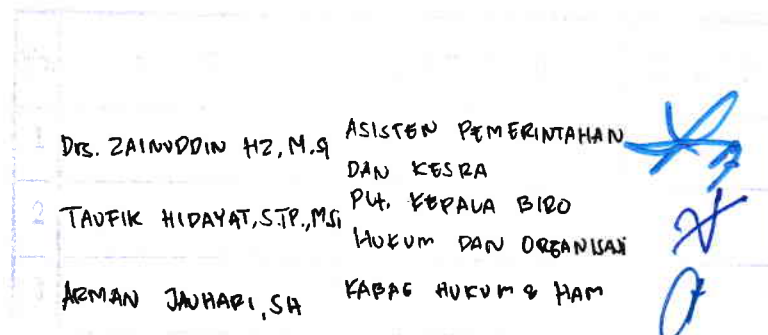 Drs. ZAINUDDIN HZ, M.Si
ASISTEN PEMERINTAHAN
DAN KESRA
TAUFIK HIDAYAT, S.TP., MSi
Plt. KEPALA BIRO
HUKUM DAN ORGANISASI
ARMAN JAUHARI, SH
KABAG HUKUM & HAM